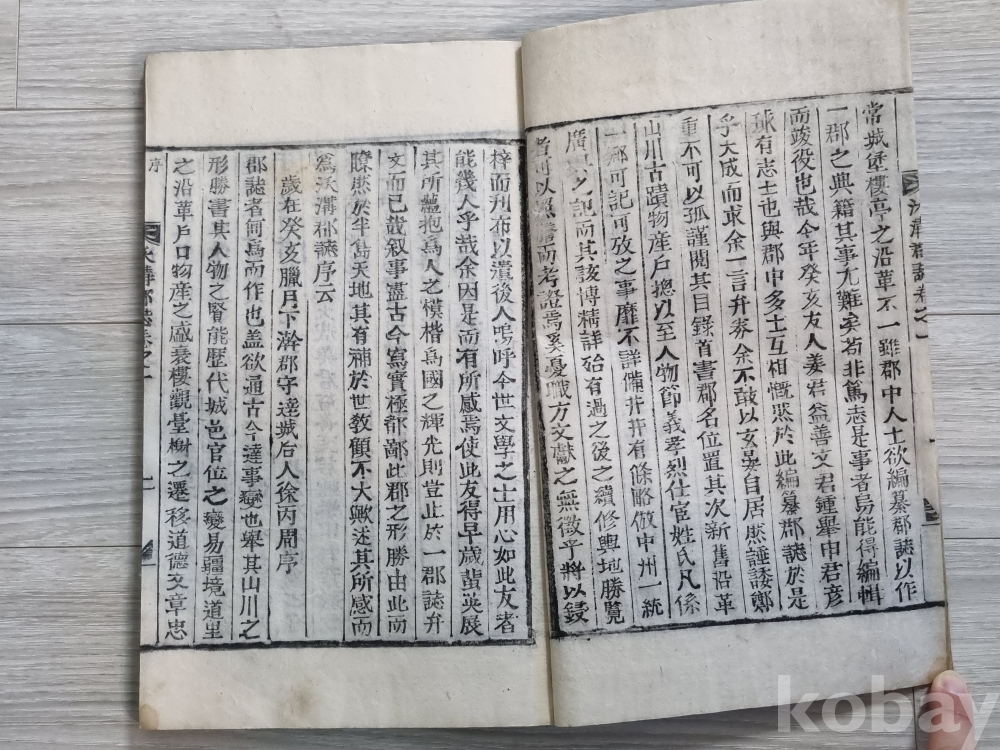 常城堡樓亭之沿革不一雖郡中人士欲編纂郡誌以作
一郡之典籍其事尤難矣苟非篤志是事者曷能得編輯
而竣役也哉今年癸亥友人姜君益善文君鍾舉申君彦
球有志士也與郡中多士互相慨然於此編纂郡誌於是
乎大成而求余一言弁秊余不敢以玄晏自居然誰諉鄭
重不可以孤謹閱其目錄首書郡名位置其次新舊沿革
山川古蹟物産戶摠以至人物節義孝烈仕宦姓氏凡係
一鄉可記可攷之事靡不詳備井井有條略倣中州一統
廣 之記而其該博精詳殆有過之後之續修輿地勝覽
者可以 而考證焉奚憂職方文獻之無徵乎將以鋟
梓而刋布以遺後人嗚呼今世文學之士用心如此友者
能幾人乎哉余因是而有所感焉使此友得早歲蜚英展
其所蘊抱爲人之模楷爲國之輝光則豈止於一郡誌弁
文而已哉叙事盡古今寫實極都鄙此郡之形勝由此而
瞭然於半島天地其有補於世敎顧不大歟述其所感而
爲沃溝郡誌序云
歲在癸亥臘月下澣郡守達城后人徐丙周序
郡誌者何爲而作也盖欲通古今達事變也舉其山川之
形勝書其人物之賢能歷代城邑官位之變易疆境道里
之沿革戶口物産之盛衰樓觀臺榭之遷移道德文章忠
序
沃溝郡誌卷之一
二
kobay